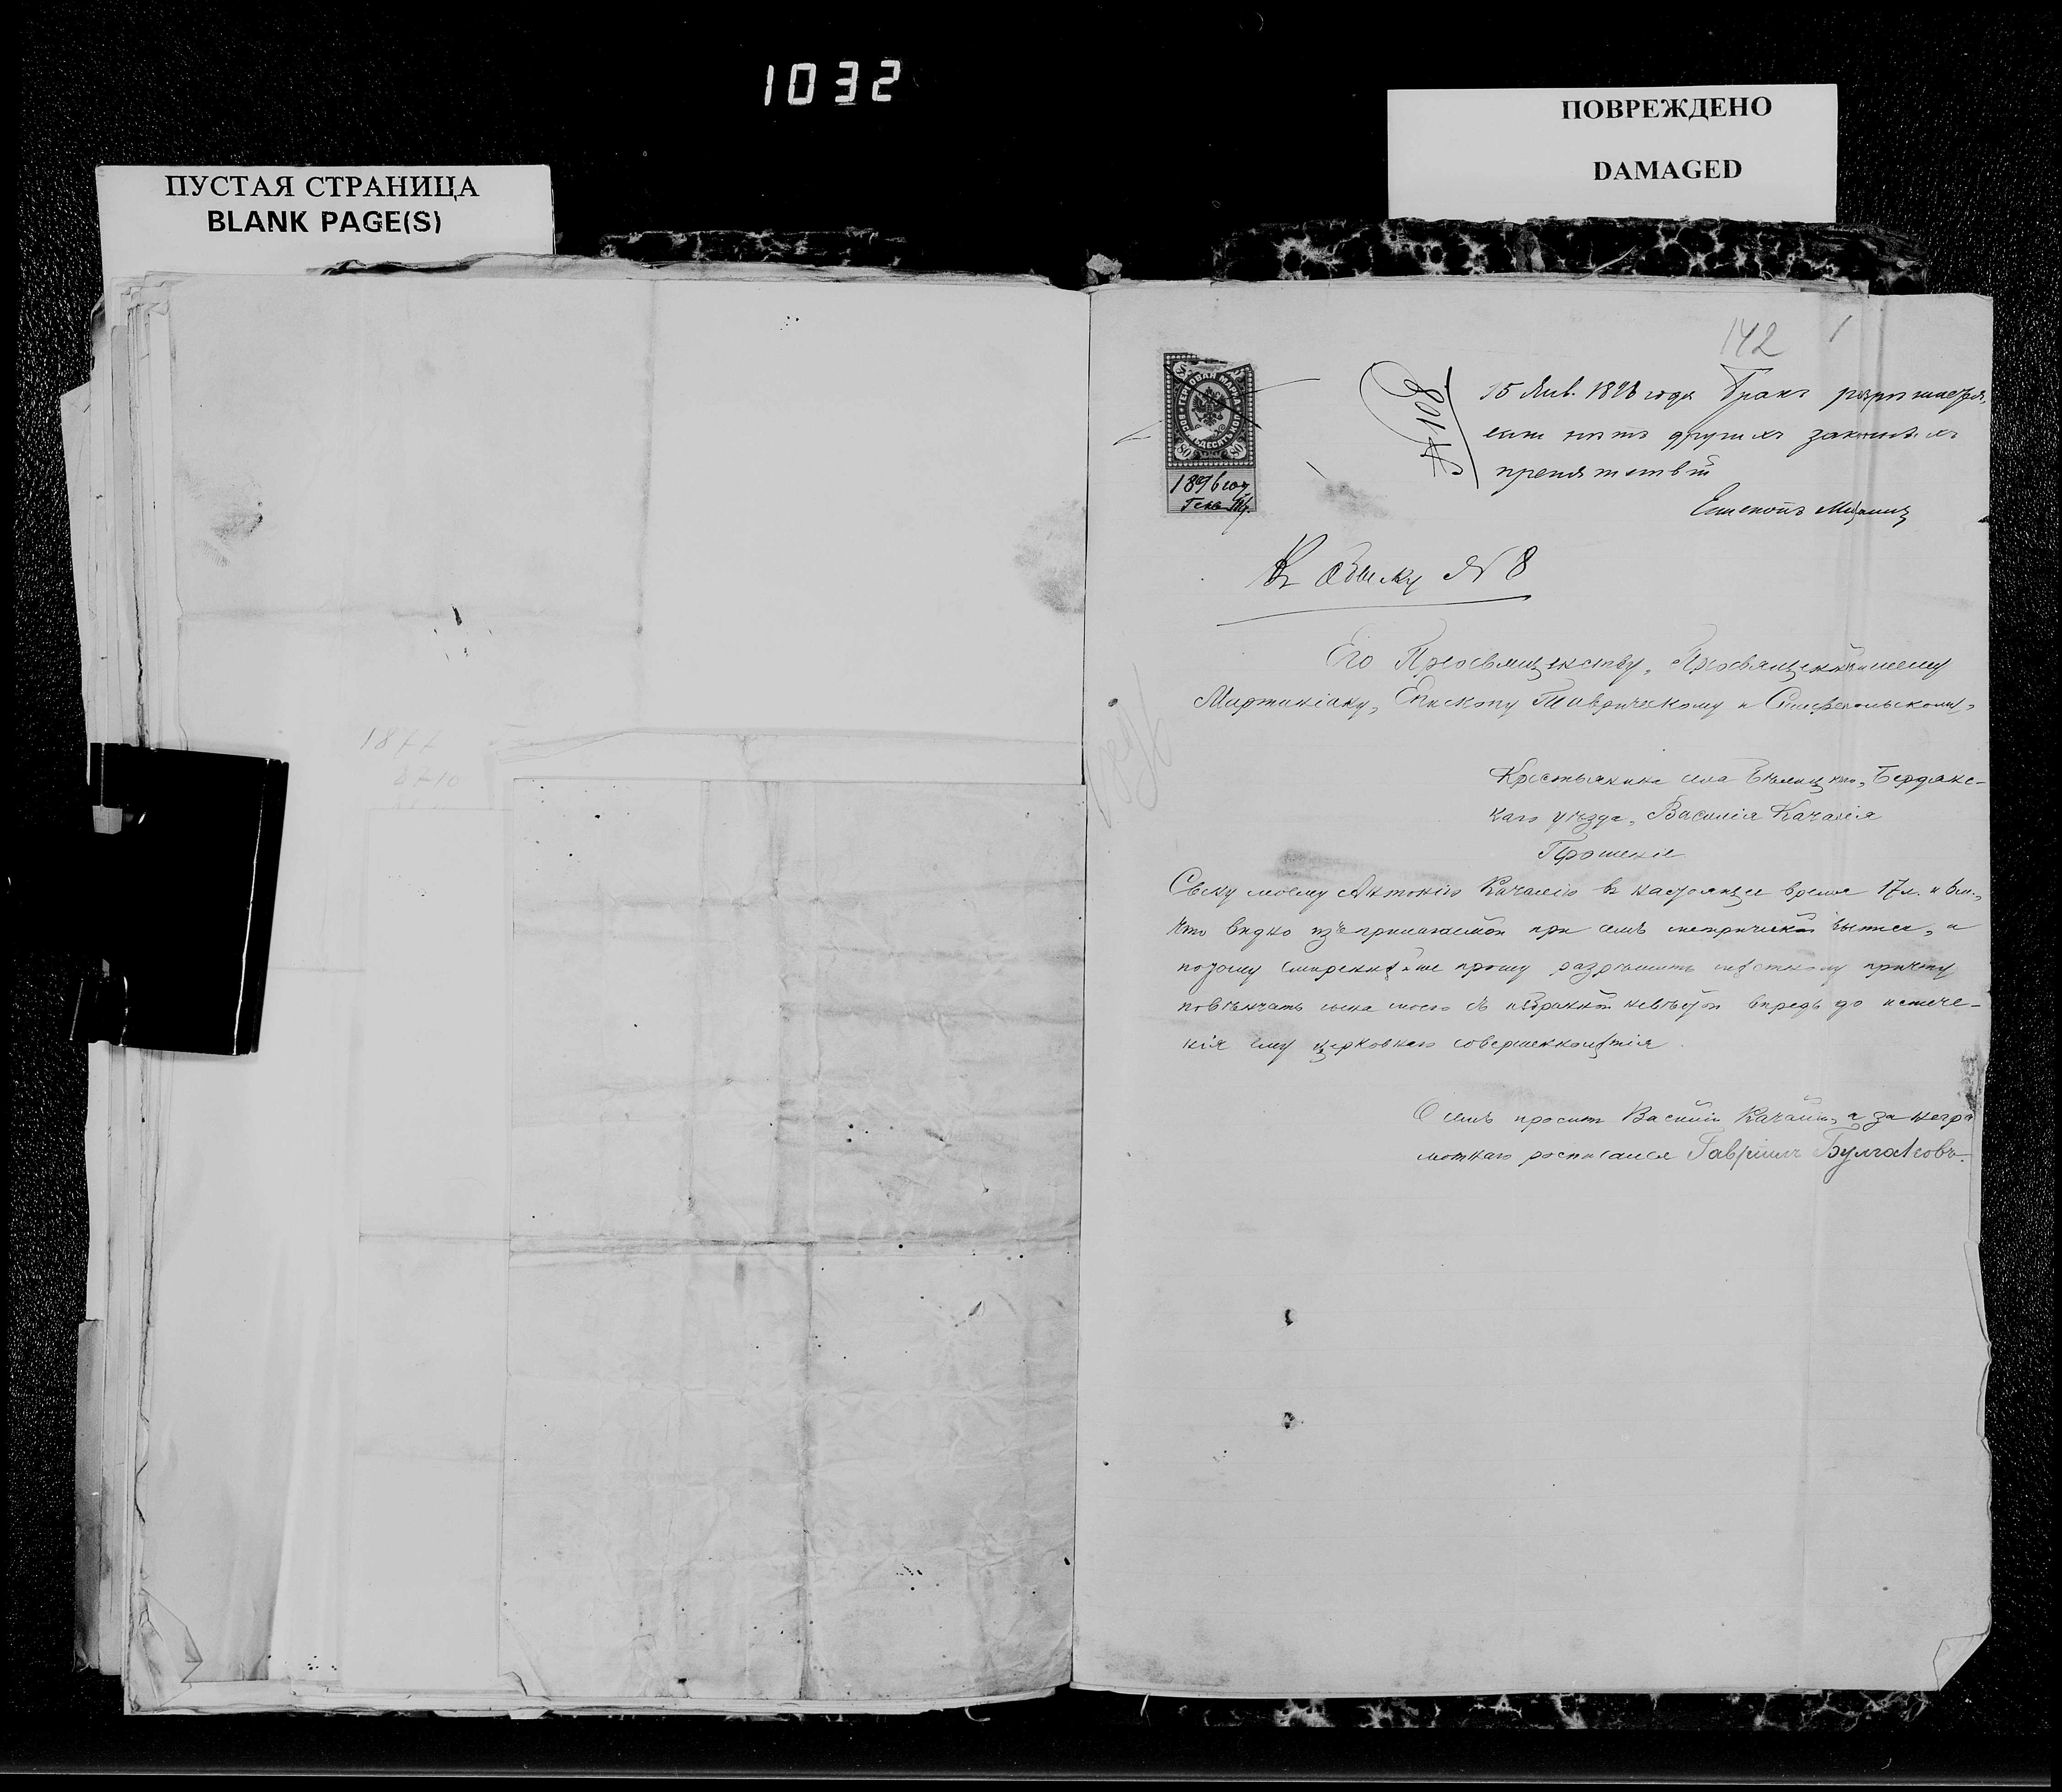 1032
ПУСТАЯ СТРАНИЦА
BLANK PAGE(S)
ПОВРЕЖДЕНО
DAMAGED
142
1
15 Янв. 1896 года Бракъ разрешается,
если нѣтъ другихъ законныхъ
препятствій
Епископъ
№ 108
ГЕРБОВАЯ МАРКА
ВОСЕМЬДЕСЯТЪ КОП
80 80
1896 год
Къ обыску № 8
Его Преосвященству, Преосвященнѣйшему
Мартиніану, Епископу Таврическому и Симферопольскому,
Крестьянина села Бердянс-
каго уѣзда, Василія Качалія
Прошеніе
Сыну моему Антонію Качалію въ настоящее время 17 л. и 6 м.,
что видно изъ прилагаемой при семъ метрической выписи, а
потому смиреннѣйше прошу разрѣшить мѣстному причту
повѣнчать сына моего съ избранной невѣстой впредь до истече-
нія ему церковнаго совершеннолѣтія.
О семъ проситъ Василій Качалій, а за негра
мотнаго росписался Гавріилъ Булгаковъ.
1877